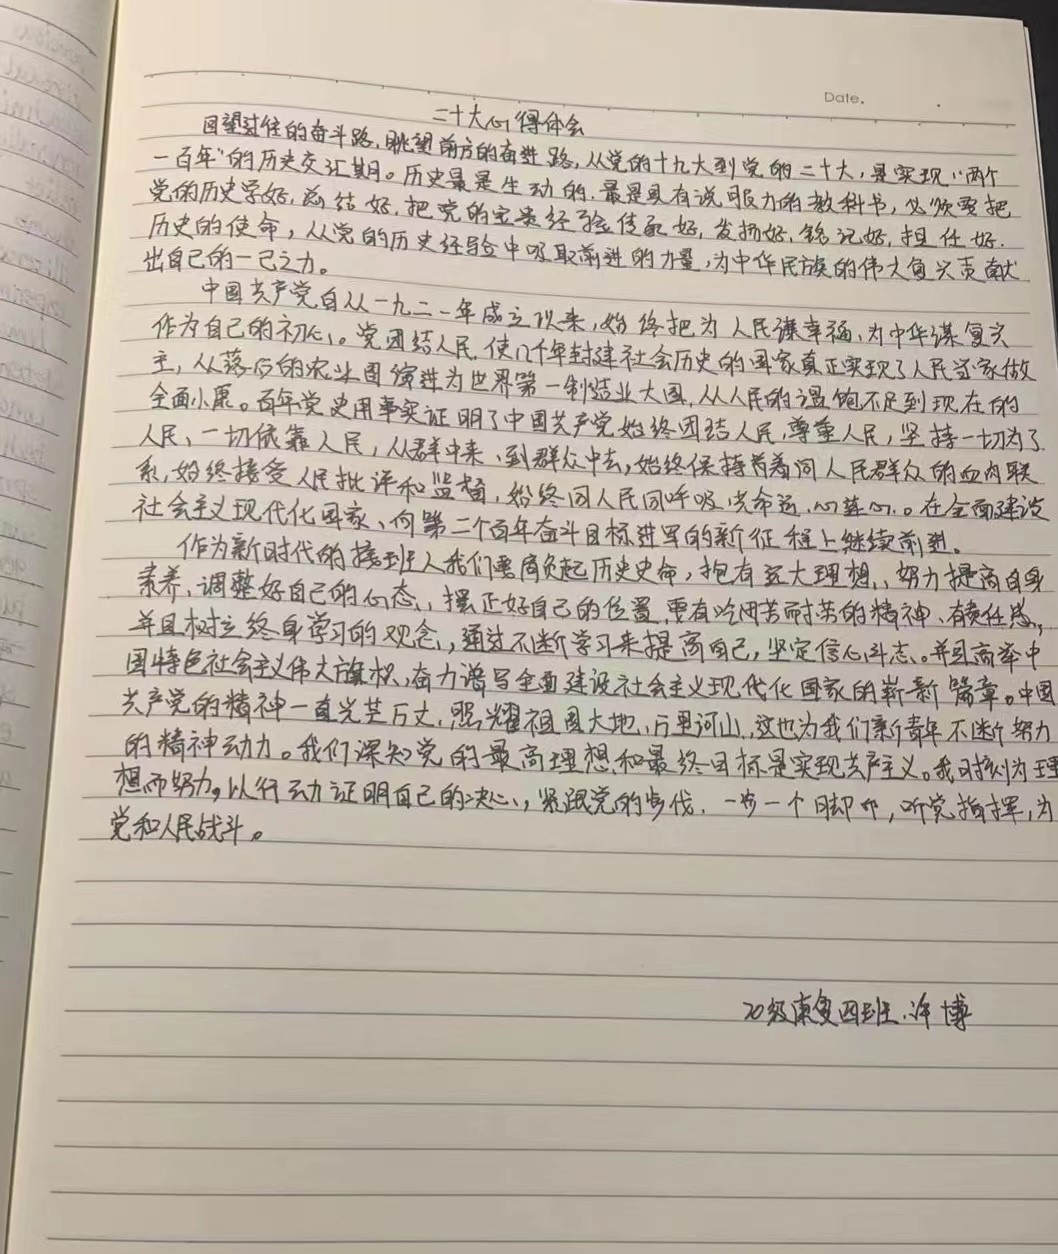 Date.
二十大心得体会
回望过往的奋斗路,眺望前方的奋进路,从党的十九大到党的二十大,是实现"两个
一百年"的历史交汇期。历史最是生动的,最是具有说服力的教科书,必须要把
党的历史学好,总结好,把党的宝贵经验传承好,发扬好,铭记好,担任好.
历史的使命,从党的历史经验中吸取前进的力量,为中华民族的伟大复兴贡献
出自己的一己之力。
中国共产党自从一九二一年成立以来,始终把为人民谋幸福,为中华谋复兴
作为自己的初心。党团结人民,使几千年封建社会历史的国家真正实现了人民当家做
主,从落后的农业国演进为世界第一制造业大国,从人民的温饱不足到现在的
全面小康。百年党史用事实证明了中国共产党始终团结人民,尊重人民,坚持一切为了
人民、一切依靠人民,从群中来、到群众中去,始终保持着同人民群众的血肉联
系,始终接受人民批评和监督,始终同人民同呼吸、共命运、心连心。在全面建设
社会主义现代化国家、向第二个百年奋斗目标进军的新征程上继续前进。
作为新时代的接班人我们要肩负起历史史命,抱有远大理想,努力提高自身
素养、调整好自己的心态,摆正好自己的位置,更有吃苦耐劳的精神、有责任感,
并且树立终身学习的观念,通过不断学习来提高自己,坚定信心斗志。并且高举中
国特色社会主义伟大旗帜,奋力谱写全面建设社会主义现代化国家的崭新篇章。中国
共产党的精神一直光芒万丈,照耀祖国大地、万里河山,这也为我们新青年不断努力
的精神动力。我们深知党的最高理想和最终目标是实现共产主义。我时刻为理
想而努力。以行动证明自己的决心,紧跟党的步伐.一步一个脚印,听党指挥,为
党和人民战斗。
20级康复四班.许博